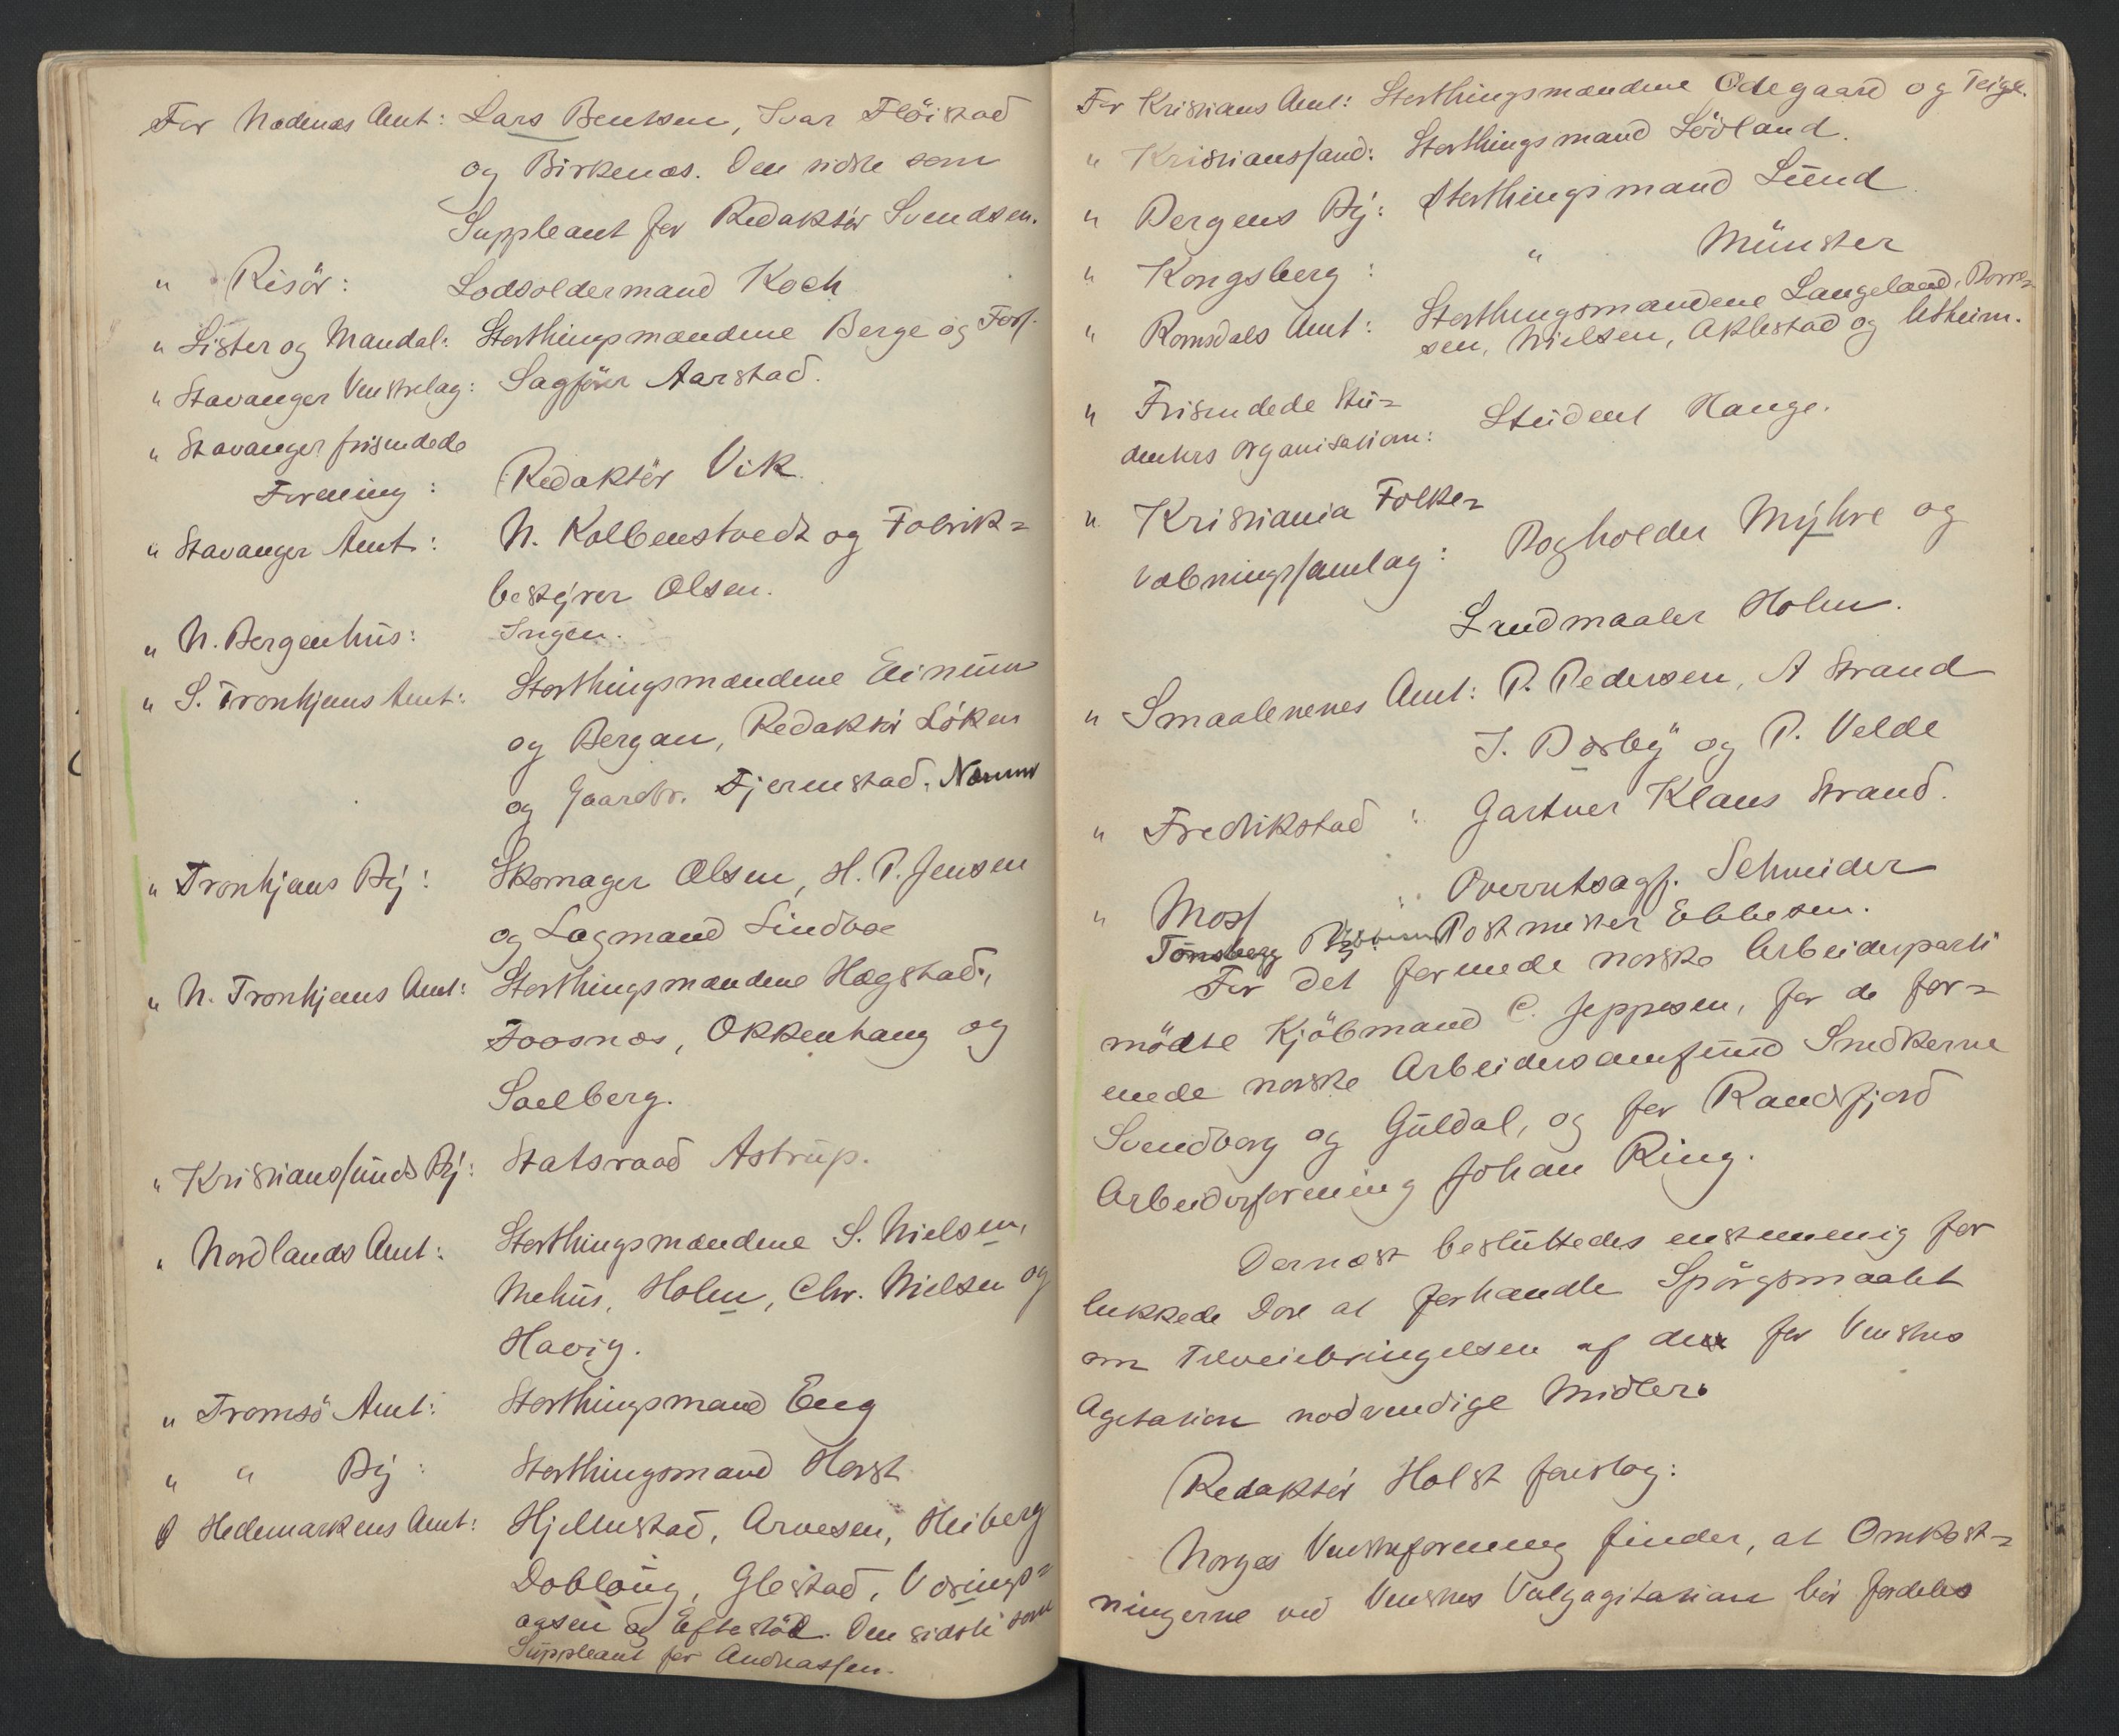 For Nedenæs Amt: Lars Bentsen, Ivar Flöistad
og Birkenæs. Den sidste som
Suppleant for Redaktör Svendsen.
" Risör: Lodsoldermand Koch
" Lister og Mandal: Storthingsmændene Berge og Foss.
" Stavanger Venstrelag: Sagförer Aarstad.
" Stavanger frisindede
Forening: Redaktör Vik.
" Stavanger Amt: N. Kolbenstvedt og Fabrik=
bestyrer Olsen.
" N. Bergenhus: Ingen.
" S. Tronhjems Amt: Storthingsmændene Five
og Bergan, Redaktör Löken
og Gaardbr. Fjermstad.
" Tronhjems By: Skomager Olsen, H. P. Jensen
og Lagmand Lindboe
" N. Tronhjems Amt: Storthingsmændene Hægstad,
Foosnæs, Okkenhaug og
Saelberg.
" Kristiansunds By: Statsraad Astrup.
" Nordlands Amt: Storthingsmændene S. Nielsen,
Mehus, Holm, Chr. Nielsen og
Havig.
" Tromsö Amt: Storthingsmand Eng
" " By: Storthingsmand Horst
" Hedemarkens Amt: Hjelmstad, Arvesen, Heiberg
Dobloug, Glestad, Værings=
aasen og Eftestöl. Den sidste som
Suppleant for Andreassen.
For Kristians Amt: Storthingsmændene Ödegaard og Teige.
" Kristianssand: Storthingsmand Lövland.
" Bergens By: Storthingsmand Lund.
" Kongsberg: " Münster
" Romsdals Amt: Storthingsmændene Langeland, Dorre=
sen, Nielsen, Aklestad og Utheim.
" Frisindede Stu=
denters Organisation: Student Hauge.
" Kristiania Folke=
væbningssamlag: Bogholder Myhre og
Landmaaler Holm.
" Smaalenenes Amt: P. Pedersen, A Strand
I. Dærby og P. Velde
" Fredrikstad: Gartner Klaus Strand.
" Moss: Overretssagf. Schneider
Tönsberg By: Postmester Ebbesen.
For det forenede norske Arbeiderparti
mödte Kjöbmand C. Jeppesen, for de for=
enede norske Arbeidersamfund Snedkerne
Svendborg og Guldal, og for Randsfjord
Arbeiderforening Johan Ring.
Dernæst besluttedes enstemmig for
lukkede Döre at forhandle Spörgsmaalet
om Tilveiebringelsen af de for Venstres
Agitation nødvendige Midler.
Redaktör Holst foreslog:
Norges Venstreforening finder, at Omkost=
ningerne ved Venstres Valgagitation bör fordeles